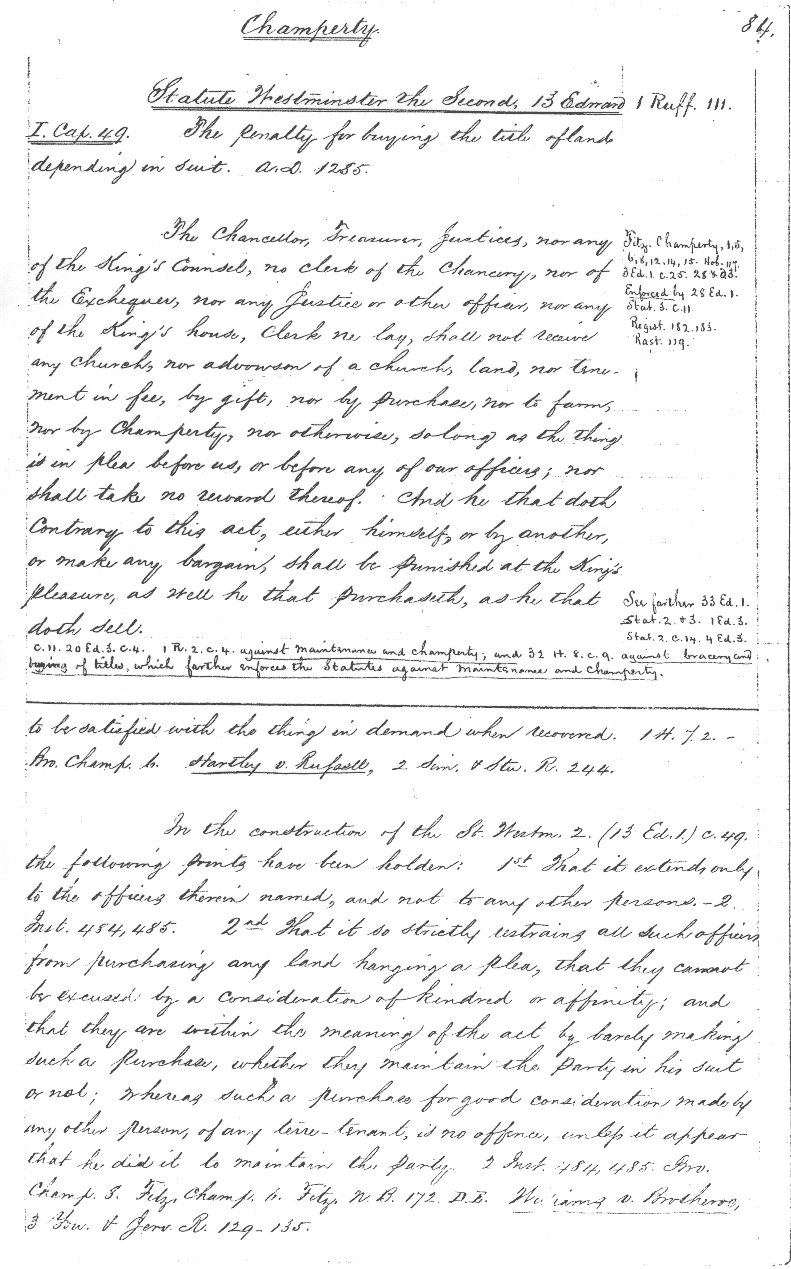 Champerty.
84.
Statute Westminster the Second, 13 Edward 1 Ruff. 111.
I. Cap. 49. The penalty for buying the title of land
depending in suit. A.D. 1285.
The Chancellor, Treasurer, Justices, nor any
of the King's Counsel, no clerk of the Chancery, nor of
the Exchequer, nor any Justice or other officer, nor any
of the King's house, Clerk ne lay, shall not receive
any church, nor advowson of a church, land, nor tene-
ment in fee, by gift, nor by purchase, nor to farm,
nor by Champerty, nor otherwise, so long as the thing
is in plea before us, or before any of our officers; nor
shall take no reward thereof. And he that doth
Contrary to this act, either himself, or by another,
or make any bargain, shall be punished at the King's
pleasure, as well he that purchaseth, as he that
doth sell.
Fitz. Champerty, 1, 5,
6, 8, 12, 14, 15. Hob. 117.
3 Ed. 1. c. 25. 28 &
Enforced by 28 Ed. 1.
Stat. 3. c. 11.
Regist. 182. 183.
Rast. 119.
See farther 33 Ed. 1.
Stat. 2. & 3. 1 Ed. 3.
Stat. 2. c. 14. 4 Ed. 3.
c. 11. 20 Ed. 3. c. 4. 1 R. 2. c. 4. against maintenance and champerty; and 32 H. 8. c. 9. against bracery and
buying of titles, which farther enforces the Statutes against Maintenance and Champerty.
to be satisfied with the thing in demand when recovered. 1 H. 7. 2. -
Bro. Champ. 6. Hartley v. Russell, 2 Sim. & Stu. R. 244.
In the construction of the St. Westm. 2. (13 Ed. 1.) c. 49.
the following points have been holden: 1st That it extends only
to the officers therein named, and not to any other persons. - 2
Inst. 484, 485. 2nd That it so strictly restrains all such officers
from purchasing any land hanging a plea, that they cannot
be excused by a consideration of kindred or affinity; and
that they are within the meaning of the act by barely making
such a Purchase, whether they maintain the Party in his suit
or not; whereas such a purchase for good consideration made by
any other person, of any terre-tenant, is no offence, unless it appear
that he did it to maintain the Party. 2 Inst. 484, 485. Bro.
Champ. 3. Fitz. Champ. 6. Fitz. N. B. 172. D. E. Williams v. Protheroe,
3 You. & Jerv. R. 129-135.